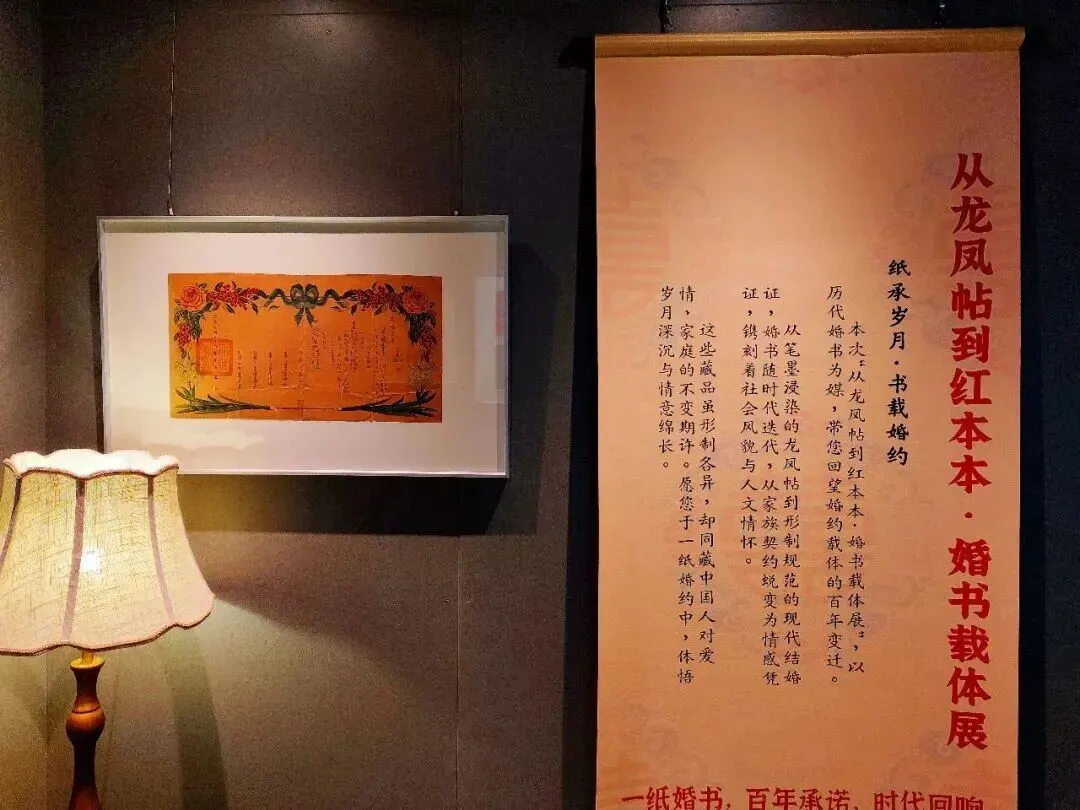 从龙凤帖到红本本·婚书载体展
纸承岁月·书载婚约
本次“从龙凤帖到红本本·婚书载体展”，以
历代婚书为媒，带您回望婚约载体的百年变迁。
从笔墨浸染的龙凤帖到形制规范的现代结婚
证，婚书随时代迭代，从家族契约蜕变为情感凭
证，镌刻着社会风貌与人文情怀。
这些藏品虽形制各异，却同藏中国人对爱
情，家庭的不变期许。愿您于一纸婚约中，体悟
岁月深沉与情意绵长。
一纸婚书，百年承诺，时代回响